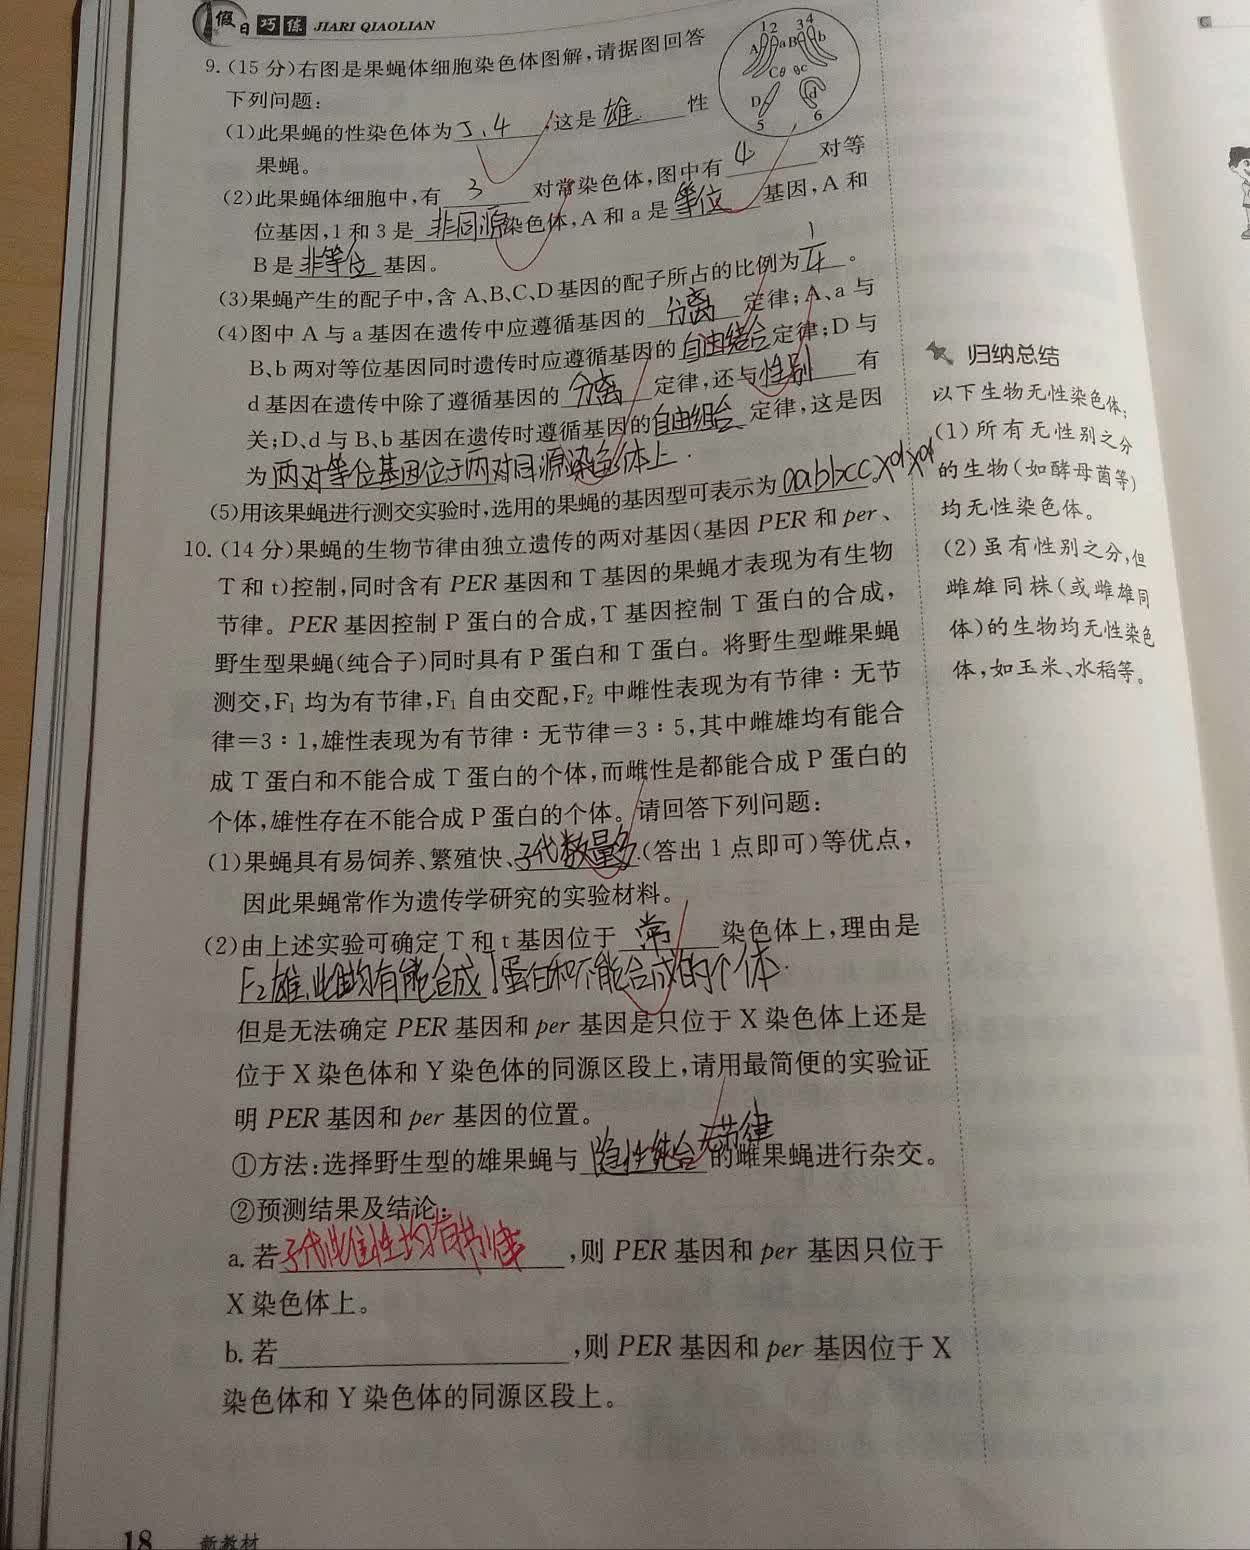 假日巧练 JIARI QIAOLIAN
9.(15 分)右图是果蝇体细胞染色体图解,请据图回答
下列问题:
1 2 3 4
A a B b
C c
D d
5 6
(1)此果蝇的性染色体为 5、4 ,这是 雄 性
果蝇。
(2)此果蝇体细胞中,有 3 对常染色体,图中有 4 对等
位基因,1 和 3 是 非同源 染色体,A 和 a 是 等位 基因,A 和
B 是 非等位 基因。
(3)果蝇产生的配子中,含 A、B、C、D 基因的配子所占的比例为 1/4 。
(4)图中 A 与 a 基因在遗传中应遵循基因的 分离 定律;A、a 与
B、b 两对等位基因同时遗传时应遵循基因的 自由结合 定律;D 与
d 基因在遗传中除了遵循基因的 分离 定律,还与 性别 有
关;D、d 与 B、b 基因在遗传时遵循基因的 自由组合 定律,这是因
为 两对等位基因位于两对同源染色体上.
(5)用该果蝇进行测交实验时,选用的果蝇的基因型可表示为 aabbccXdXd 。
10.(14 分)果蝇的生物节律由独立遗传的两对基因(基因 PER 和 per、
T 和 t)控制,同时含有 PER 基因和 T 基因的果蝇才表现为有生物
节律。PER 基因控制 P 蛋白的合成,T 基因控制 T 蛋白的合成,
野生型果蝇(纯合子)同时具有 P 蛋白和 T 蛋白。将野生型雌果蝇
测交,F₁ 均为有节律,F₁ 自由交配,F₂ 中雌性表现为有节律∶无节
律=3∶1,雄性表现为有节律∶无节律=3∶5,其中雌雄均有能合
成 T 蛋白和不能合成 T 蛋白的个体,而雌性是都能合成 P 蛋白的
个体,雄性存在不能合成 P 蛋白的个体。请回答下列问题:
(1)果蝇具有易饲养、繁殖快、子代数量多.(答出 1 点即可)等优点,
因此果蝇常作为遗传学研究的实验材料。
(2)由上述实验可确定 T 和 t 基因位于 常 染色体上,理由是
F₂雄、雌均有能合成T蛋白和不能合成的个体.
但是无法确定 PER 基因和 per 基因是只位于 X 染色体上还是
位于 X 染色体和 Y 染色体的同源区段上,请用最简便的实验证
明 PER 基因和 per 基因的位置。
①方法:选择野生型的雄果蝇与 隐性纯合无节律 的雌果蝇进行杂交。
②预测结果及结论:
a. 若 子代雌雄性均有节律 ,则 PER 基因和 per 基因只位于
X 染色体上。
b. 若 ,则 PER 基因和 per 基因位于 X
染色体和 Y 染色体的同源区段上。
18 新教材
归纳总结
以下生物无性染色体:
(1)所有无性别之分
的生物(如酵母菌等)
均无性染色体。
(2)虽有性别之分,但
雌雄同株(或雌雄同
体)的生物均无性染色
体,如玉米、水稻等。
C